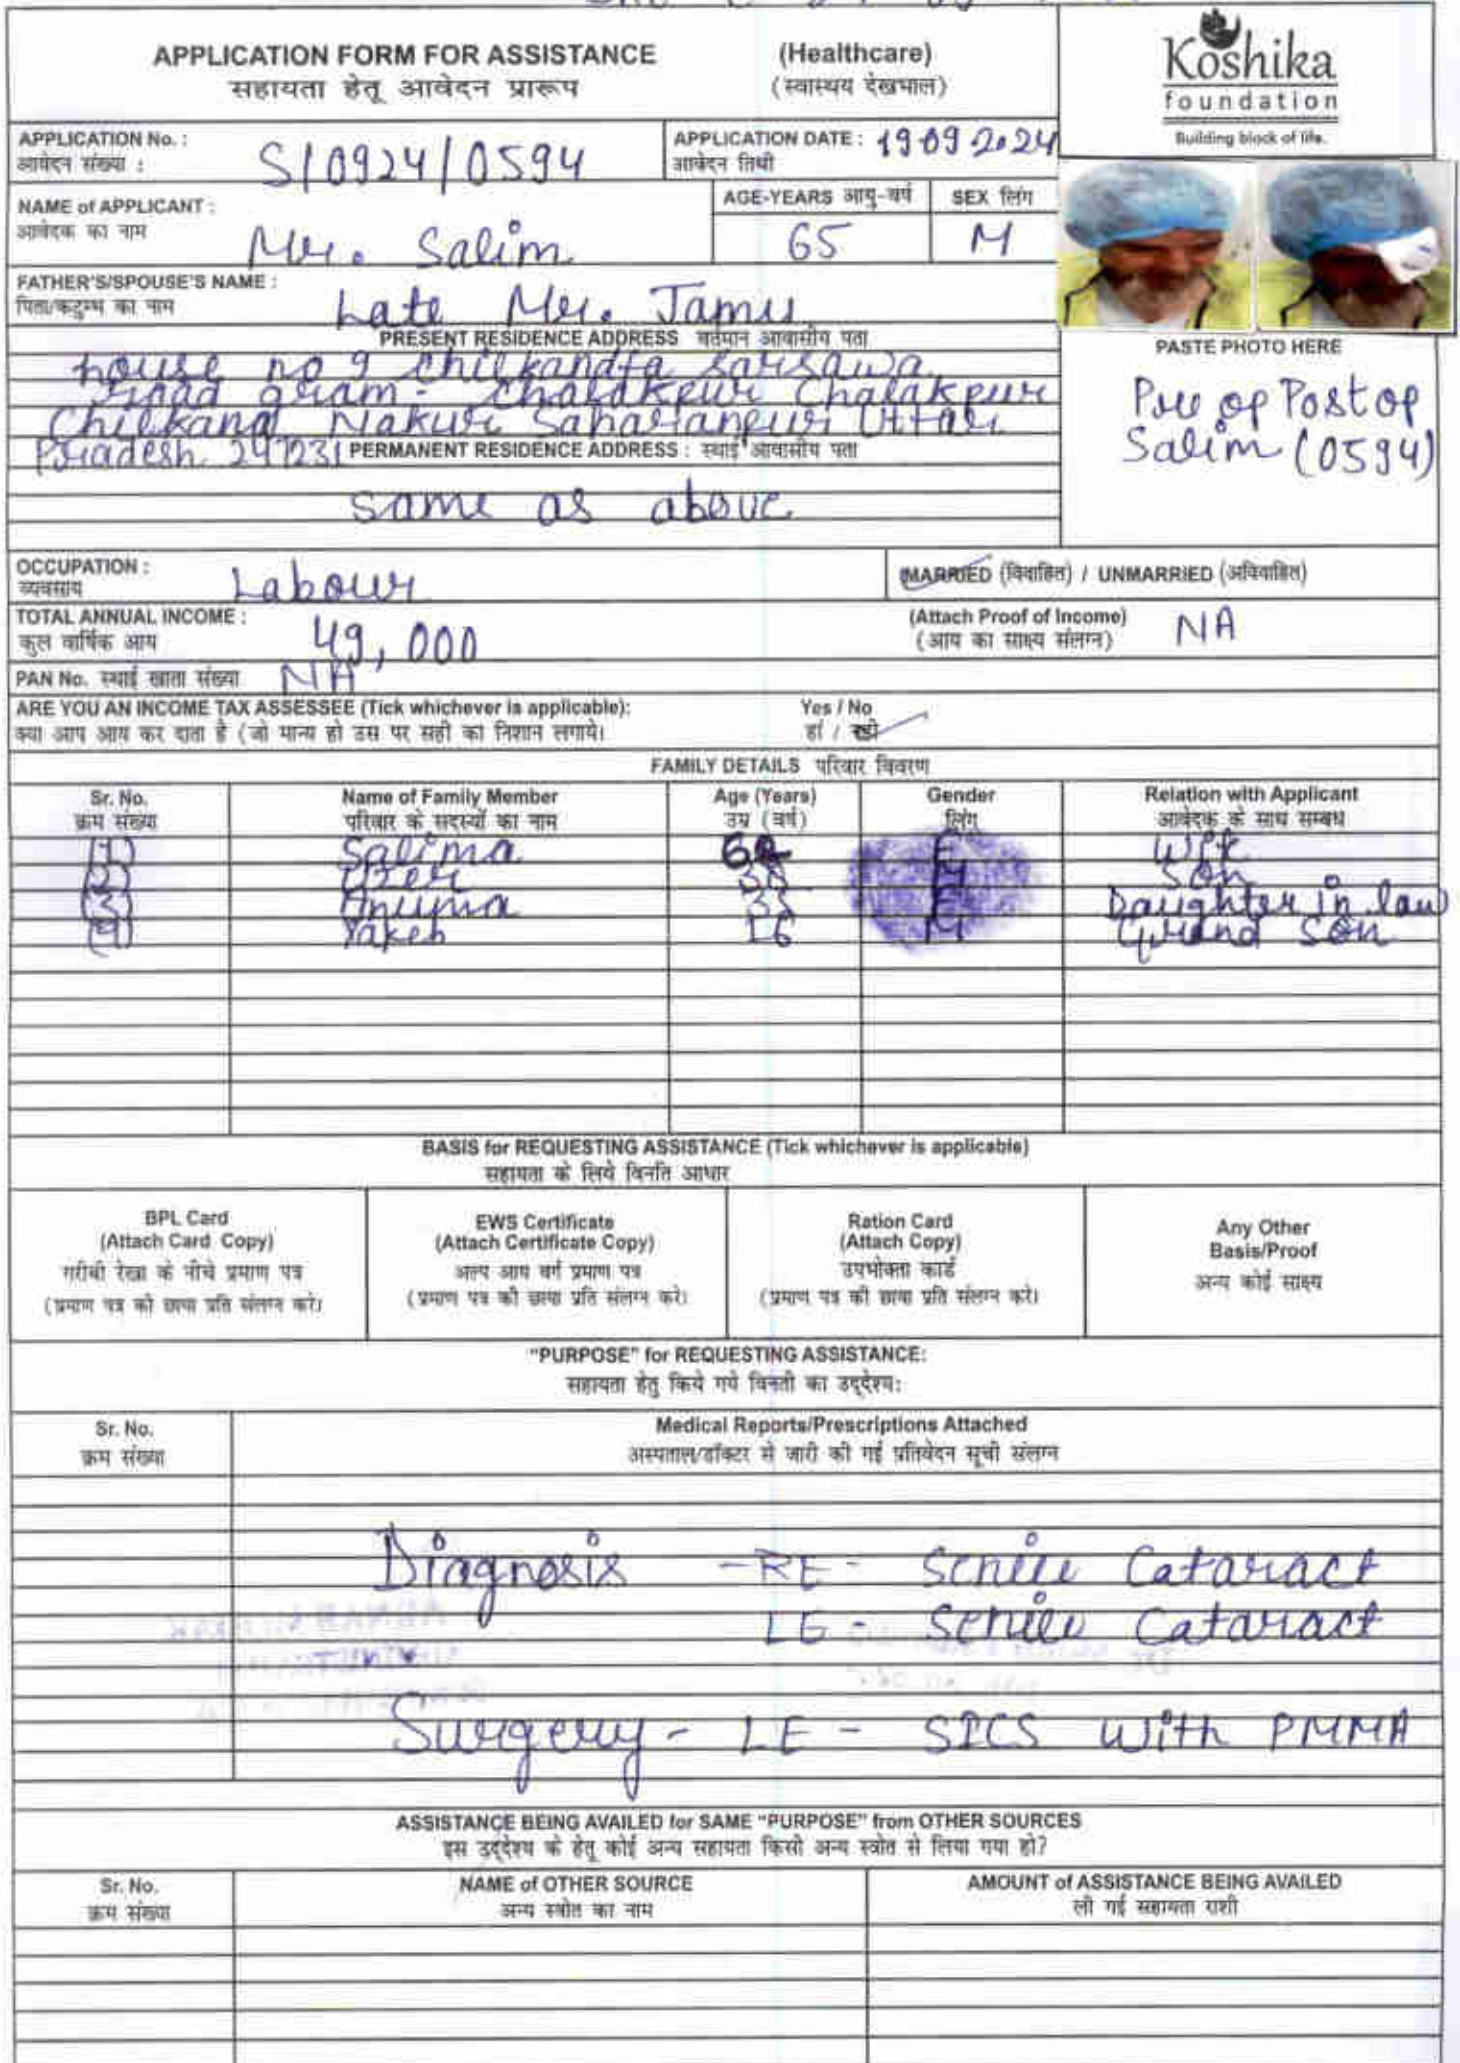 APPLICATION FORM FOR ASSISTANCE (Healthcare)
सहायता हेतू आवेदन प्रारूप (स्वास्थय देखभाल)
Koshika
foundation
Building block of life.
APPLICATION No. : S/0924/0594
आवेदन संख्या :
APPLICATION DATE : 19.09.2024
आवेदन तिथी
NAME of APPLICANT : Mr. Salim
आवेदक का नाम
AGE-YEARS आयु-वर्ष 65
SEX लिंग M
FATHER'S/SPOUSE'S NAME : Late Mr. Jamu
पिता/कटुम्ब का नाम
PRESENT RESIDENCE ADDRESS वर्तमान आवासीय पता
house no 9 Chilkanda Sarsawa
road gram - Chalakpur Chalakpur
Chilkana Nakur Saharanpur Uttar
Pradesh 247231
PERMANENT RESIDENCE ADDRESS : स्थाई आवासीय पता
same as above
PASTE PHOTO HERE
Pre op Post op
Salim (0594)
OCCUPATION : Labour
व्यवसाय
MARRIED (विवाहित) / UNMARRIED (अविवाहित)
TOTAL ANNUAL INCOME : 49,000
कुल वार्षिक आय
(Attach Proof of Income) NA
(आय का साक्ष्य संलग्न)
PAN No. स्थाई खाता संख्या NA
ARE YOU AN INCOME TAX ASSESSEE (Tick whichever is applicable): Yes / No
क्या आप आय कर दाता है (जो मान्य हो उस पर सही का निशान लगाये। हां / नही
FAMILY DETAILS परिवार विवरण
Sr. No. Name of Family Member Age (Years) Gender Relation with Applicant
क्रम संख्या परिवार के सदस्यों का नाम उम्र (वर्ष) लिंग आवेदक के साथ सम्बध
(1) Salima 62 F wife
(2) Uzer M Son
(3) Anuma F Daughter in law
(4) Yakeb 16 M Grand Son
BASIS for REQUESTING ASSISTANCE (Tick whichever is applicable)
सहायता के लिये विनति आधार
BPL Card
(Attach Card Copy)
गरीबी रेखा के नीचे प्रमाण पत्र
(प्रमाण पत्र की छाया प्रति संलग्न करे।
EWS Certificate
(Attach Certificate Copy)
अल्प आय वर्ग प्रमाण पत्र
(प्रमाण पत्र की छाया प्रति संलग्न करे।
Ration Card
(Attach Copy)
उपभोक्ता कार्ड
(प्रमाण पत्र की छाया प्रति संलग्न करे।
Any Other
Basis/Proof
अन्य कोई साक्ष्य
"PURPOSE" for REQUESTING ASSISTANCE:
सहायता हेतु किये गये विनती का उद्देश्य:
Sr. No. Medical Reports/Prescriptions Attached
क्रम संख्या अस्पताल/डॉक्टर से जारी की गई प्रतिवेदन सूची संलग्न
Diagnosis - RE - Senile Cataract
LE - Senile Cataract
Surgery - LE - SICS with PMMA
ASSISTANCE BEING AVAILED for SAME "PURPOSE" from OTHER SOURCES
इस उद्देश्य के हेतू कोई अन्य सहायता किसी अन्य स्त्रोत से लिया गया हो?
Sr. No. NAME of OTHER SOURCE AMOUNT of ASSISTANCE BEING AVAILED
क्रम संख्या अन्य स्त्रोत का नाम ली गई सहायता राशी